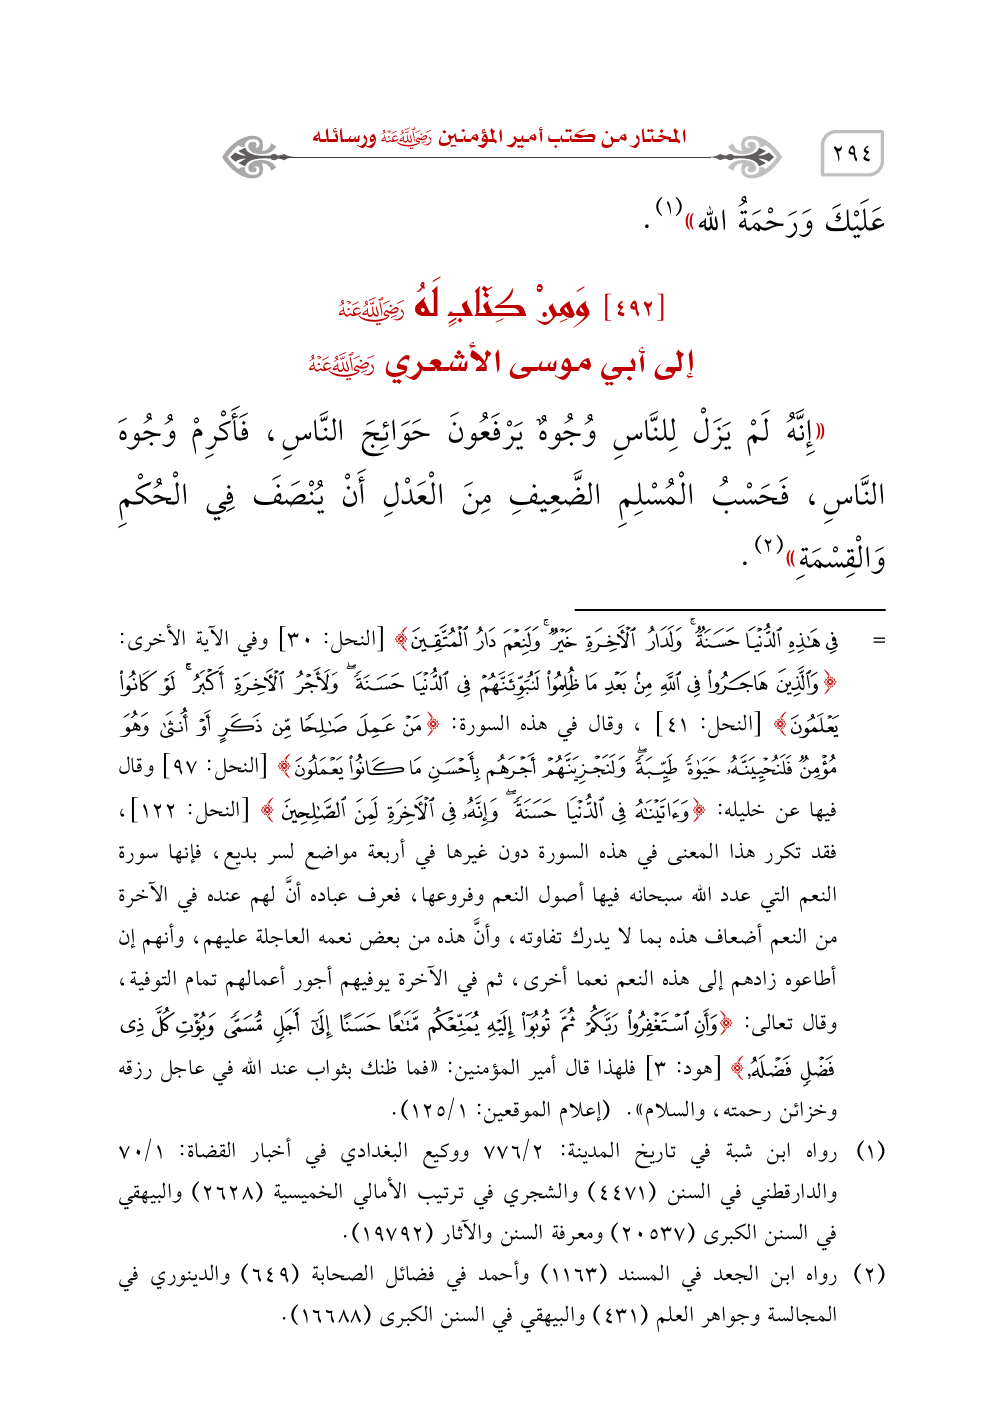 ٢٩٤
المختار من كتب أمير المؤمنين رضي الله عنه ورسائله
عَلَيْكَ وَرَحْمَةُ الله»(١).
[٤٩٢] وَمِنْ كِتَابٍ لَهُ رضي الله عنه
إلى أبي موسى الأشعري رضي الله عنه
«إِنَّهُ لَمْ يَزَلْ لِلنَّاسِ وُجُوهٌ يَرْفَعُونَ حَوَائِجَ النَّاسِ، فَأَكْرِمْ وُجُوهَ
النَّاسِ، فَحَسْبُ الْمُسْلِمِ الضَّعِيفِ مِنَ الْعَدْلِ أَنْ يُنْصَفَ فِي الْحُكْمِ
وَالْقِسْمَةِ»(٢).
= فِي هَٰذِهِ ٱلدُّنۡيَا حَسَنَةٞۚ وَلَدَارُ ٱلۡأٓخِرَةِ خَيۡرٞۚ وَلَنِعۡمَ دَارُ ٱلۡمُتَّقِينَ﴾ [النحل: ٣٠] وفي الآية الأخرى:
﴿وَٱلَّذِينَ هَاجَرُواْ فِي ٱللَّهِ مِنۢ بَعۡدِ مَا ظُلِمُواْ لَنُبَوِّئَنَّهُمۡ فِي ٱلدُّنۡيَا حَسَنَةٗۖ وَلَأَجۡرُ ٱلۡأٓخِرَةِ أَكۡبَرُۚ لَوۡ كَانُواْ
يَعۡلَمُونَ﴾ [النحل: ٤١] ، وقال في هذه السورة: ﴿مَنۡ عَمِلَ صَٰلِحٗا مِّن ذَكَرٍ أَوۡ أُنثَىٰ وَهُوَ
مُؤۡمِنٞ فَلَنُحۡيِيَنَّهُۥ حَيَوٰةٗ طَيِّبَةٗۖ وَلَنَجۡزِيَنَّهُمۡ أَجۡرَهُم بِأَحۡسَنِ مَا كَانُواْ يَعۡمَلُونَ﴾ [النحل: ٩٧] وقال
فيها عن خليله: ﴿وَءَاتَيۡنَٰهُ فِي ٱلدُّنۡيَا حَسَنَةٗۖ وَإِنَّهُۥ فِي ٱلۡأٓخِرَةِ لَمِنَ ٱلصَّٰلِحِينَ﴾ [النحل: ١٢٢]،
فقد تكرر هذا المعنى في هذه السورة دون غيرها في أربعة مواضع لسر بديع، فإنها سورة
النعم التي عدد الله سبحانه فيها أصول النعم وفروعها، فعرف عباده أنَّ لهم عنده في الآخرة
من النعم أضعاف هذه بما لا يدرك تفاوته، وأنَّ هذه من بعض نعمه العاجلة عليهم، وأنهم إن
أطاعوه زادهم إلى هذه النعم نعما أخرى، ثم في الآخرة يوفيهم أجور أعمالهم تمام التوفية،
وقال تعالى: ﴿وَأَنِ ٱسۡتَغۡفِرُواْ رَبَّكُمۡ ثُمَّ تُوبُوٓاْ إِلَيۡهِ يُمَتِّعۡكُم مَّتَٰعًا حَسَنًا إِلَىٰٓ أَجَلٖ مُّسَمّٗى وَيُؤۡتِ كُلَّ ذِي
فَضۡلٖ فَضۡلَهُۥ﴾ [هود: ٣] فلهذا قال أمير المؤمنين: «فما ظنك بثواب عند الله في عاجل رزقه
وخزائن رحمته، والسلام». (إعلام الموقعين: ١/١٢٥).
(١) رواه ابن شبة في تاريخ المدينة: ٧٧٦/٢ ووكيع البغدادي في أخبار القضاة: ٧٠/١
والدارقطني في السنن (٤٤٧١) والشجري في ترتيب الأمالي الخميسية (٢٦٢٨) والبيهقي
في السنن الكبرى (٢٠٥٣٧) ومعرفة السنن والآثار (١٩٧٩٢).
(٢) رواه ابن الجعد في المسند (١١٦٣) وأحمد في فضائل الصحابة (٦٤٩) والدينوري في
المجالسة وجواهر العلم (٤٣١) والبيهقي في السنن الكبرى (١٦٦٨٨).